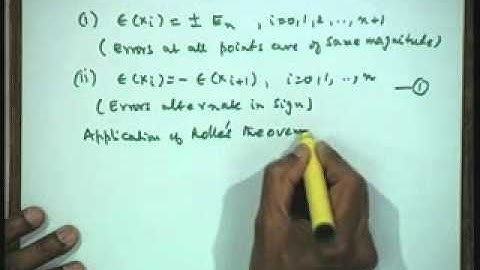 (i) ε(xi) = ± En , i=0,1,2,..,n+1
(Errors at all points are of same magnitude)
(ii) ε(xi) = - ε(xi+1), i=0,1,..,n —①
(Errors alternate in sign)
Application of Rolle's theorem